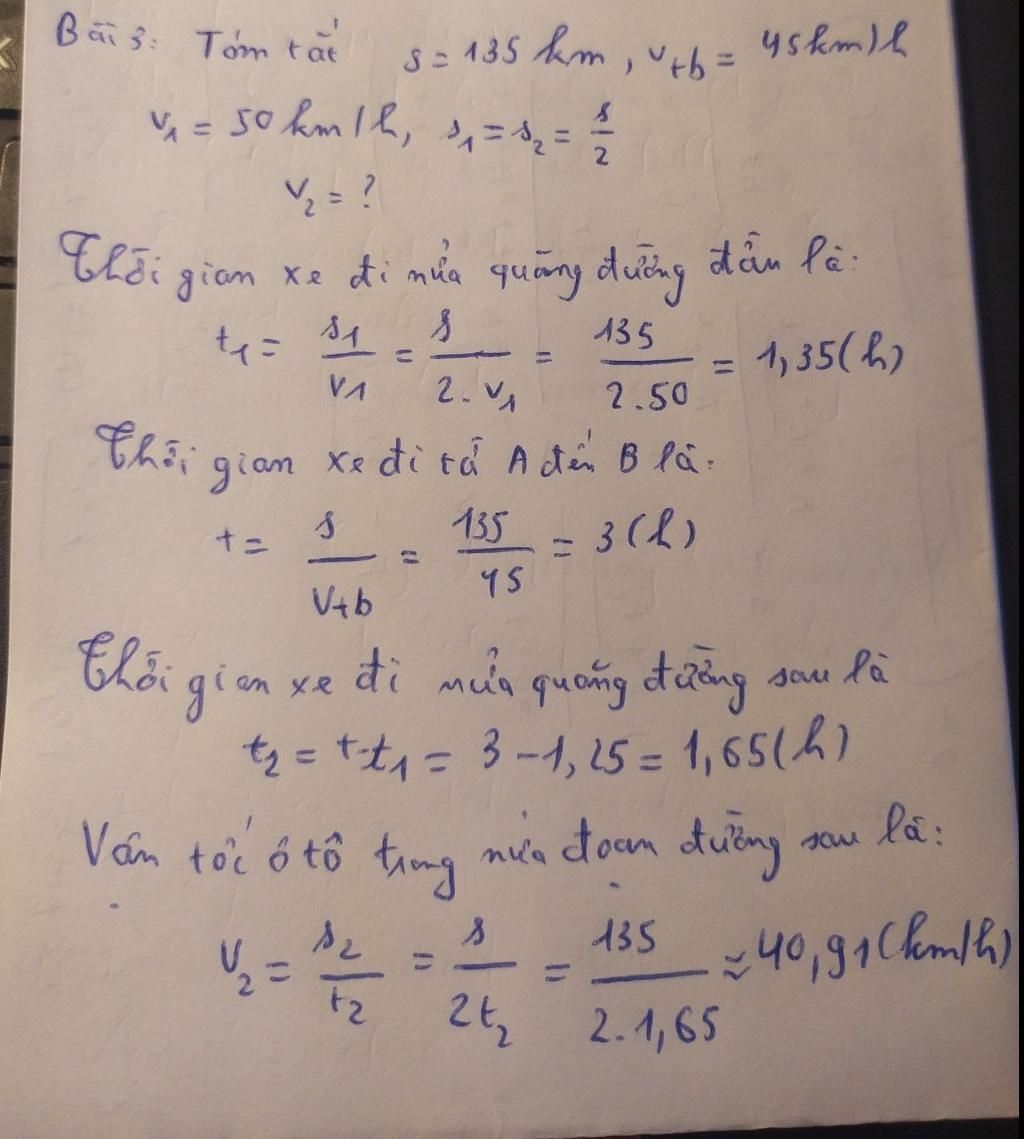 Bài 3: Tóm tắt s = 135 km, v+b = 45km/h
v1 = 50 km/h, s1 = s2 = s/2
v2 = ?
Thời gian xe đi nửa quãng đường đầu là:
t1 = s1/v1 = s/2.v1 = 135/2.50 = 1,35(h)
Thời gian xe đi từ A đến B là:
t = s/v+b = 135/45 = 3(h)
Thời gian xe đi nửa quãng đường sau là
t2 = t-t1 = 3 - 1,25 = 1,65(h)
Vận tốc ô tô trong nửa đoạn đường sau là:
V2 = s2/t2 = s/2t2 = 135/2.1,65 ≈ 40,91(km/h)